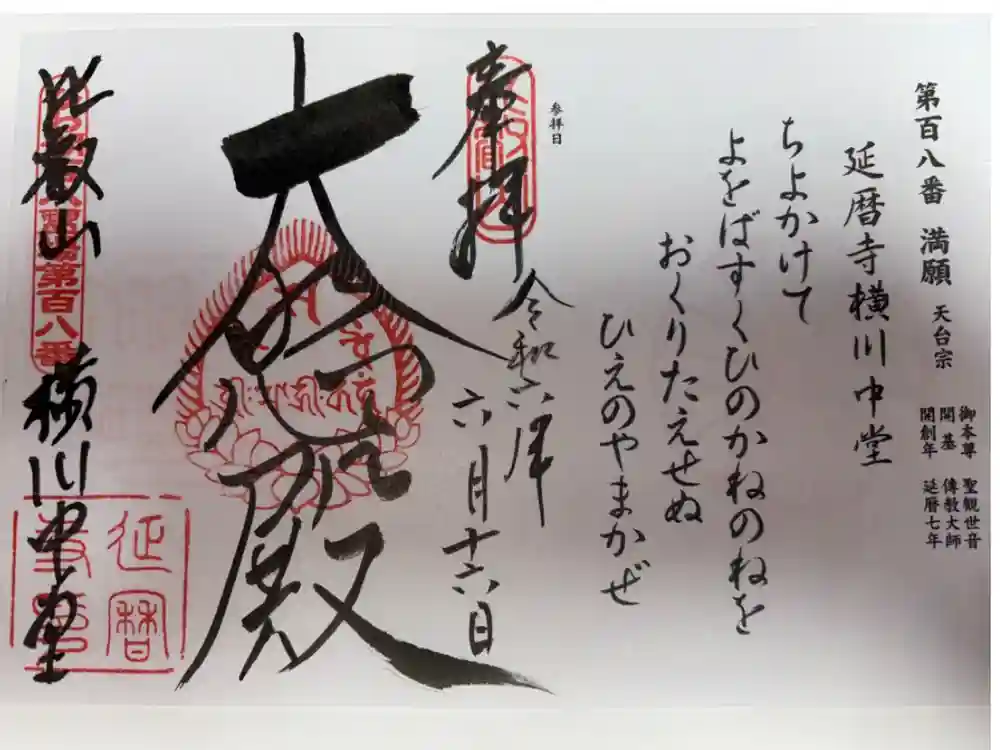 第百八番 満願 天台宗
御本尊 聖観世音
開基 傳教大師
開創年 延暦七年
延暦寺横川中堂
ちよかけて
よをばすくひのかねのねを
おくりたえせぬ
ひえのやまかぜ
参拝日
奉拝
令和六年
六月十六日
大悲殿
比叡山 横川中堂
第百八番
延暦